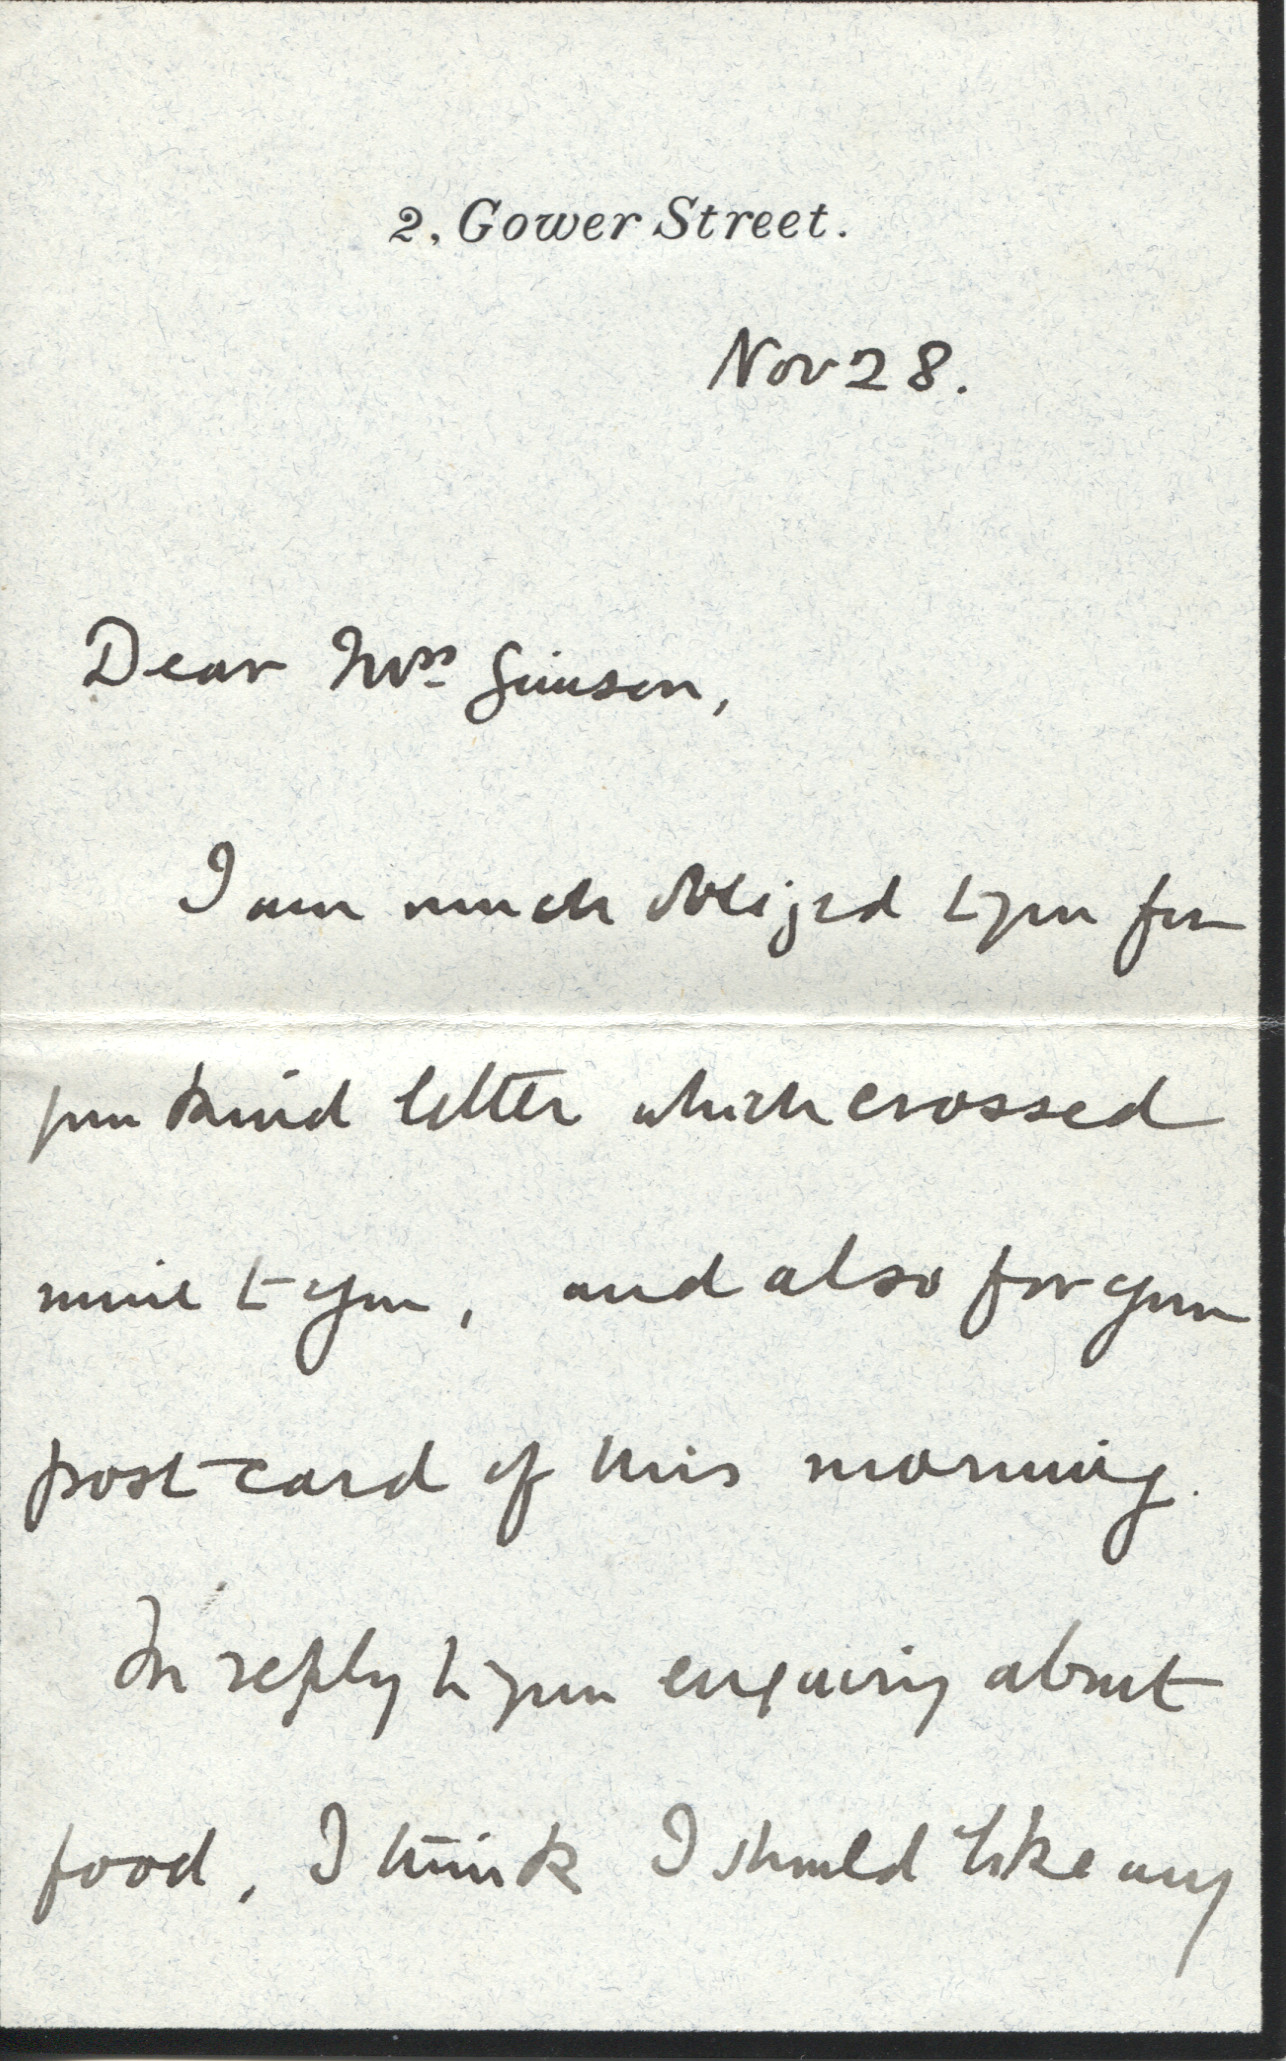 2, Gower Street.
Nov 28.
Dear Mrs Gimson,
I am much obliged to you for
your kind letter which crossed
mine to you, and also for your
post card of this morning.
In reply to your enquiry about
food, I think I should like any